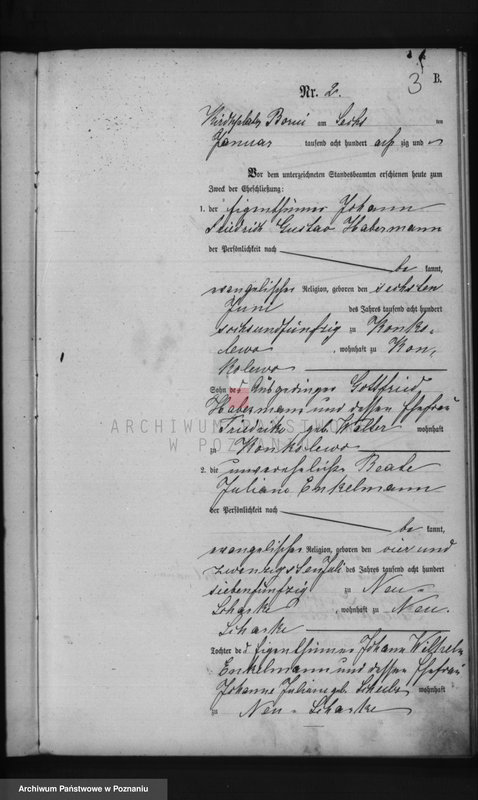 3
B.
Nr. 2.
Kirchplatz Borui am Sechs ten
Januar tausend acht hundert acht zig und
Vor dem unterzeichneten Standesbeamten erschienen heute zum
Zweck der Eheschließung:
1. der Eigenthümer Johann
Friedrich Gustav Habermann
der Persönlichkeit nach
be kannt,
evangelischer Religion, geboren den sechsten
Juni des Jahres tausend acht hundert
sechsundfünfzig zu Konko-
lewo, wohnhaft zu Kon-
kolewo
Sohn des Ausgedinger Gottfried
Habermann und dessen Ehefrau
Friedrike geb. Walter wohnhaft
ARCHIWUM PAŃSTWOWE
W POZNANIU
zu Konkolewo
2. die unverehelichte Beate
Juliane Enkelmann
der Persönlichkeit nach
be kannt,
evangelischer Religion, geboren den vier und
zwanzigsten Juli des Jahres tausend acht hundert
siebenfünfzig zu Neu-
Scharke, wohnhaft zu Neu-
Scharke
Tochter des Eigenthümer Johann Wilhelm
Enkelmann und dessen Ehefrau
Johanne Juliane geb. wohnhaft
zu Neu-Scharke
Archiwum Państwowe w Poznaniu